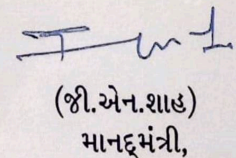 (જી.એન.શાહ)
માનદ્દમંત્રી,